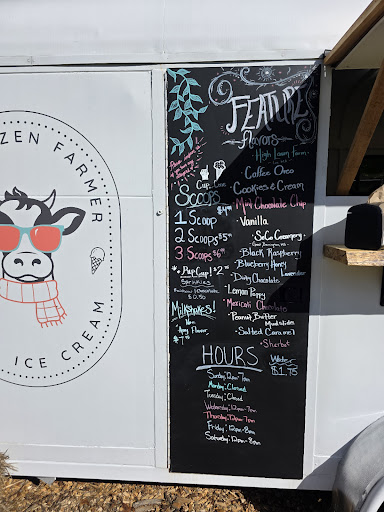 ZEN FARMER
ICE CREAM
FEATURES
Flavors
High Lawn Farm
Coffee Oreo
Cookies & Cream
Mint Chocolate Chip
Vanilla
SoCo Creamery
Black Raspberry
Blueberry Honey
Lavender
Dirty Chocolate
Lemon Poppy
Mexicali Chocolate
Peanut Butter
Mudslide
Salted Caramel
Sherbet
Cup Cone
Scoops
1 Scoop
2 Scoops $5
3 Scoops $6
Pup Cup! $2
Sprinkles
Rainbow | Chocolate
$0.50
Milkshakes!
Any Flavor
HOURS
Sunday: 12pm-7pm
Monday: Closed
Tuesday: Closed
Wednesday: 12pm-7pm
Thursday: 12pm-7pm
Friday: 12pm-8pm
Saturday: 12pm-8pm
Water
$1.75